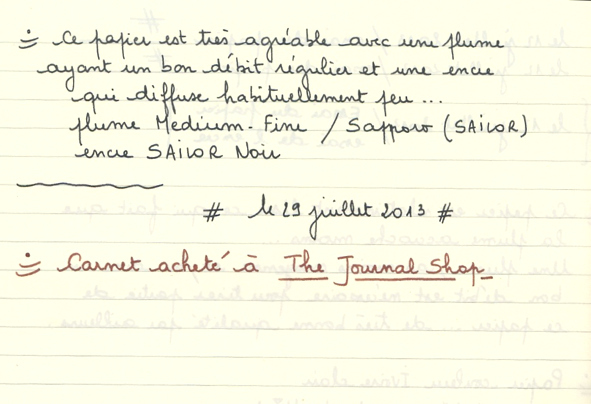 Ce papier est très agréable avec une plume
ayant un bon débit régulier et une encre
qui diffuse habituellement peu...
plume Medium-Fine / Sapporo (SAILOR)
encre SAILOR Noir
# le 29 juillet 2013 #
Carnet acheté à The Journal Shop_